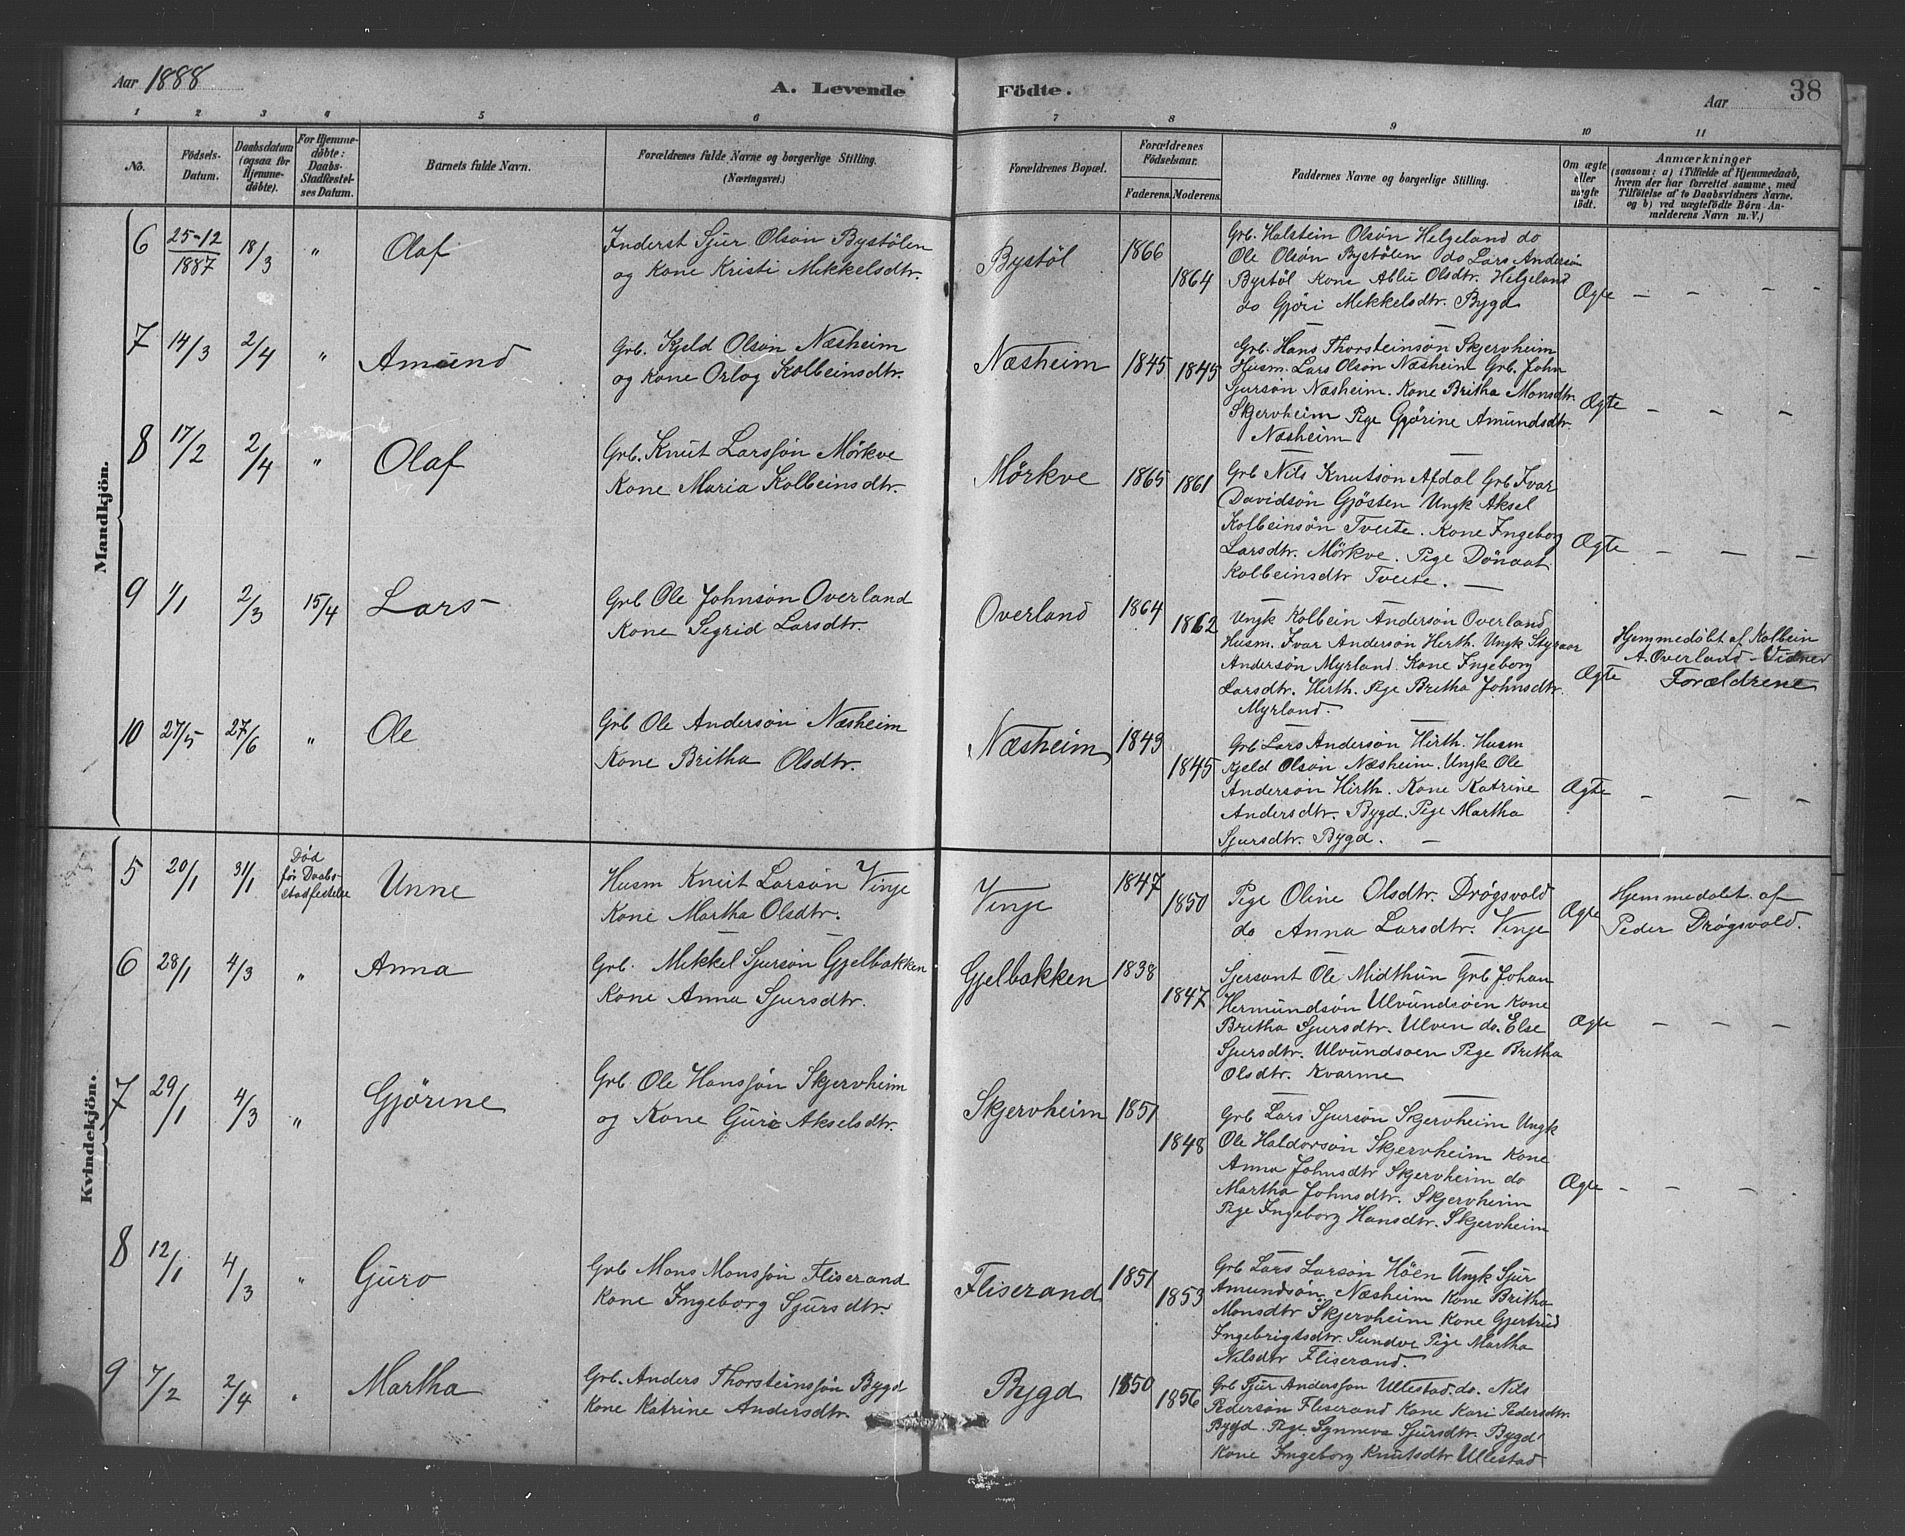 Aar 1888
A. Levende Födte.
Aar
38
1 2 3 4 5 6 7 8 9 10 11
No.
Födsels-Datum.
Daabsdatum (ogsaa for Hjemmedöbte).
For Hjemmedöbte: Daabs-Stadfæstelses Datum.
Barnets fulde Navn.
Forældrenes fulde Navne og borgerlige Stilling.
(Næringsvei.)
Forældrenes Bopæl.
Forældrenes Födselsaar.
Faderens. Moderens.
Faddernes Navne og borgerlige Stilling.
Om ægte eller uægte födt.
Anmærkninger
(saasom: a) i Tilfælde af Hjemmedaab, hvem der har forrettet samme, med Tilföielse af to Daabsvidners Navne, og b) ved uægtefödte Börn Anmelderens Navn m. V.)
Mandkjön.
6 25-12/1887 18/3 " Olaf
Inderst Sjur Olsøn Bystölen
og Kone Kristi Mikkelsdtr.
Bystöl 1866 1864
Grb. Halstein Olsøn Helgeland do
Ole Olsøn Bystölen do Lars Andersøn
Bystöl Kone Ablu Olsdtr. Helgeland
do Gjöri Mikkelsdtr. Bygd
Ægte – – – –
7 14/3 2/4 " Amund
Grb. Kjeld Olsøn Næsheim
og Kone Orlog Kolbeinsdtr.
Næsheim 1845 1845
Grb. Hans Thorsteinsøn Skjervheim
Husm. Lars Olsøn Næsheim Grb. John
Sjursøn Næsheim. Kone Britha Monsdtr.
Skjervheim Pige Gjørine Amundsdtr.
Næsheim
Ægte – – –
8 17/2 2/4 " Olaf
Grb. Knut Larssøn Mörkve
Kone Maria Kolbeinsdtr.
Mörkve 1865 1861
Grb Nils Knutsøn Afdal Grb Ivar
Davidsøn Gjösten Ungk Aksel
Kolbeinsøn Tveite. Kone Ingeborg
Larsdtr. Mörkve. Pige Dönaat
Kolbeinsdtr Tveite. –
Ægte – – –
9 1/1 2/3 15/4 Lars
Grb Ole Johnsøn Overland
Kone Sigrid Larsdtr.
Overland 1864 1862
Ungk Kolbein Andersøn Overland
Husm. Ivar Andersøn Hirth. Ungk Styraar
Andersøn Myrland. Kone Ingeborg
Larsdtr. Hirth. Pige Britha Johnsdtr.
Myrland.
Ægte
Hjemmedöbt af Kolbein
A. Overland – Vidner
Forældrene
10 27/5 27/6 " Ole
Grb Ole Andersøn Næsheim
Kone Britha Olsdtr.
Næsheim 1843 1845
Grb Lars Andersøn Hirth. Husm
Kjeld Olsøn Næsheim. Ungk Ole
Andersøn Hirth. Kone Katrine
Andersdtr. Bygd. Pige Martha
Sjursdtr. Bygd. –
Ægte – – –
Kvindekjön.
5 20/1 31/1 Död för Daabsstadfestelse Unne
Husm Knut Larsøn Vinje
Kone Martha Olsdtr.
Vinje 1847 1850
Pige Oline Olsdtr. Drøgsvold
do Anna Larsdtr. Vinje
Ægte
Hjemmedöbt af
Peder Drøgsvold.
6 28/1 4/3 " Anna
Grb. Mikkel Sjursøn Gjelbakken
Kone Anna Sjursdtr.
Gjelbakken 1838 1847
Sjersant Ole Midthun Grb Johan
Hermundsøn Ulvundsøen Kone
Britha Sjursdtr. Ulven do. Else
Sjursdtr. Ulvundsøen Pige Britha
Olsdtr. Kvarme
Ægte – – –
7 29/1 4/3 " Gjörine
Grb Ole Hanssøn Skjervheim
og Kone Guri Akselsdtr.
Skjervheim 1851 1848
Grb Lars Sjursøn Skjervheim Ungk
Ole Haldorsøn Skjervheim Kone
Anna Johnsdtr Skjervheim do
Martha Johnsdtr. Skjervheim
Pige Ingeborg Hansdtr. Skjervheim
Ægte – – –
8 12/1 4/3 " Guro
Grb Mons Monssøn Fliserand
Kone Ingeborg Sjursdtr.
Fliserand 1851 1853
Grb Lars Larsøn Höen Ungk Sjur
Amundsøn Næsheim Kone Britha
Monsdtr Skjervheim Kone Gjertrud
Ingebrigtsdtr. Sundve Pige Martha
Nilsdtr Fliserand.
9 7/2 2/4 " Martha
Grb. Anders Thorsteinssøn Bygd
Kone Katrine Andersdtr.
Bygd 1850 1856
Grb Sjur Anderssøn Ullestad. do. Nils
Pedersøn Fliserand Kone Kari Pedersdtr.
Bygd. Pige Synneva Sjursdtr. Bygd
Kone Ingeborg Knutsdtr Ullestad